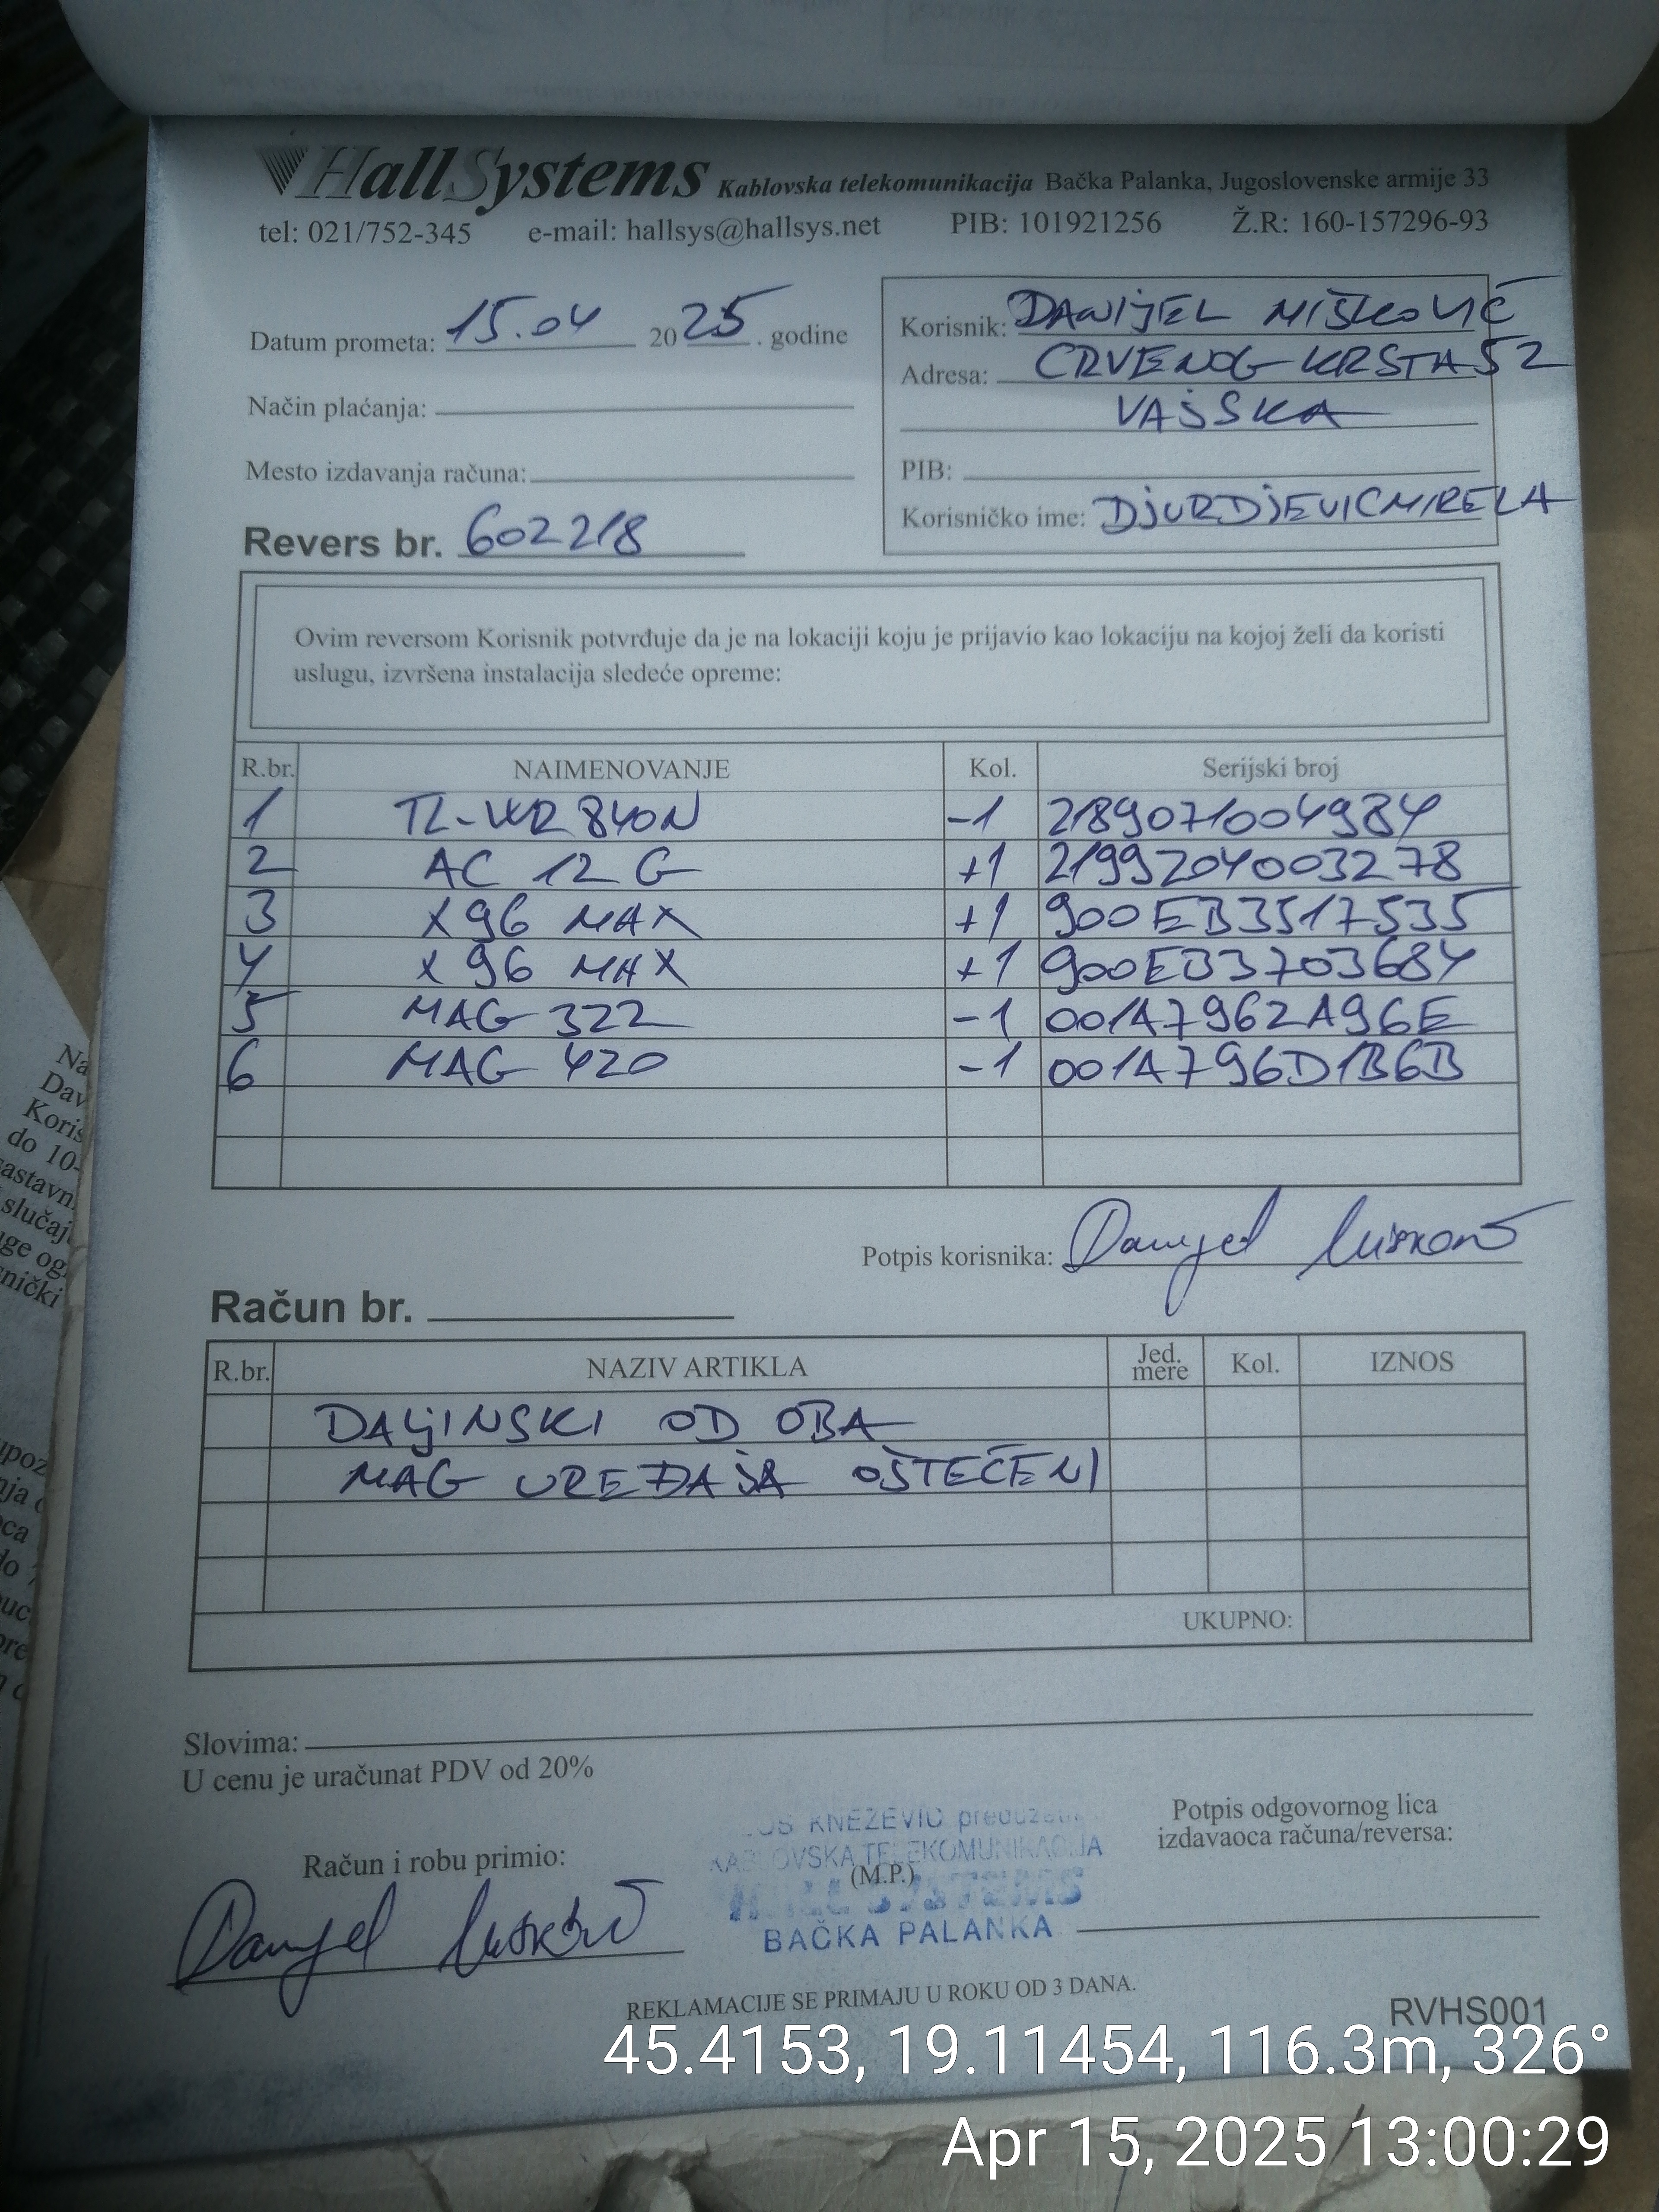 HallSystems Kablovska telekomunikacija Bačka Palanka, Jugoslovenske armije 33
tel: 021/752-345 e-mail: hallsys@hallsys.net PIB: 101921256 Ž.R: 160-157296-93
Datum prometa: 15.04 2025. godine
Način plaćanja:
Mesto izdavanja računa:
Revers br. 602218
Korisnik: DANIJEL MIŠKOVIĆ
Adresa: CRVENOG KRSTA 52
VAJSKA
PIB:
Korisničko ime: DJURDJEVICMIRELA
Ovim reversom Korisnik potvrđuje da je na lokaciji koju je prijavio kao lokaciju na kojoj želi da koristi
uslugu, izvršena instalacija sledeće opreme:
R.br. NAIMENOVANJE Kol. Serijski broj
1 TL-WR 840N -1 2189071004984
2 AC 12 G +1 2199204003278
3 X96 MAX +1 900EB3517535
4 X96 MAX +1 900EB3703684
5 MAG 322 -1 001A7962A96E
6 MAG 420 -1 001A796D1B6B
Potpis korisnika: Danijel Mišković
Račun br.
R.br. NAZIV ARTIKLA Jed. mere Kol. IZNOS
DALJINSKI OD OBA
MAG UREĐAJA OŠTEĆENI
UKUPNO:
Slovima:
U cenu je uračunat PDV od 20%
Račun i robu primio:
Danijel Mišković
KNEZEVIC preduzetnik
KABLOVSKA TELEKOMUNIKACIJA
(M.P.)
HALL SYSTEMS
BAČKA PALANKA
Potpis odgovornog lica
izdavaoca računa/reversa:
REKLAMACIJE SE PRIMAJU U ROKU OD 3 DANA.
RVHS001
45.4153, 19.11454, 116.3m, 326°
Apr 15, 2025 13:00:29
Na
Dav
Koris
do 10-
slučaj